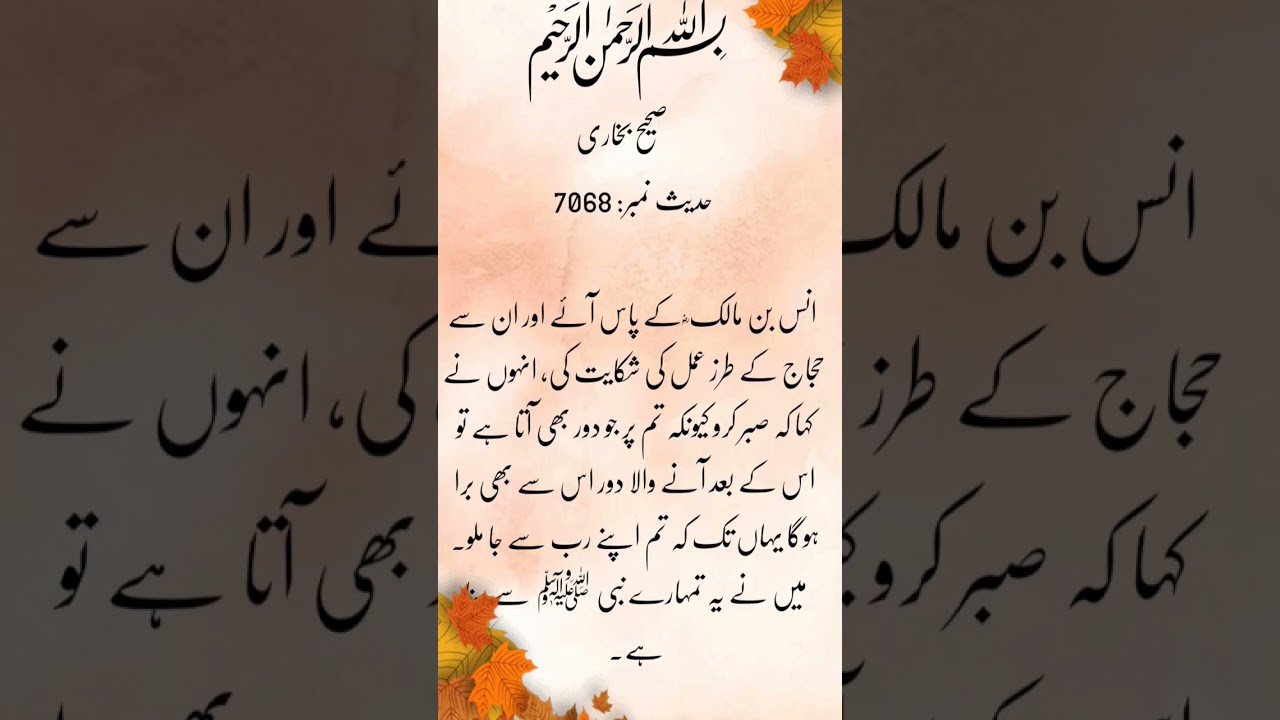 بِسْمِ اللهِ الرَّحْمٰنِ الرَّحِيْمِ
صحیح بخاری
حدیث نمبر: 7068
انس بن مالک ؓ کے پاس آئے اور ان سے
حجاج کے طرز عمل کی شکایت کی، انہوں نے
کہا کہ صبر کرو کیونکہ تم پر جو دور بھی آتا ہے تو
اس کے بعد آنے والا دور اس سے بھی برا
ہوگا یہاں تک کہ تم اپنے رب سے جا ملو۔
میں نے یہ تمہارے نبی ﷺ سے
ہے ۔